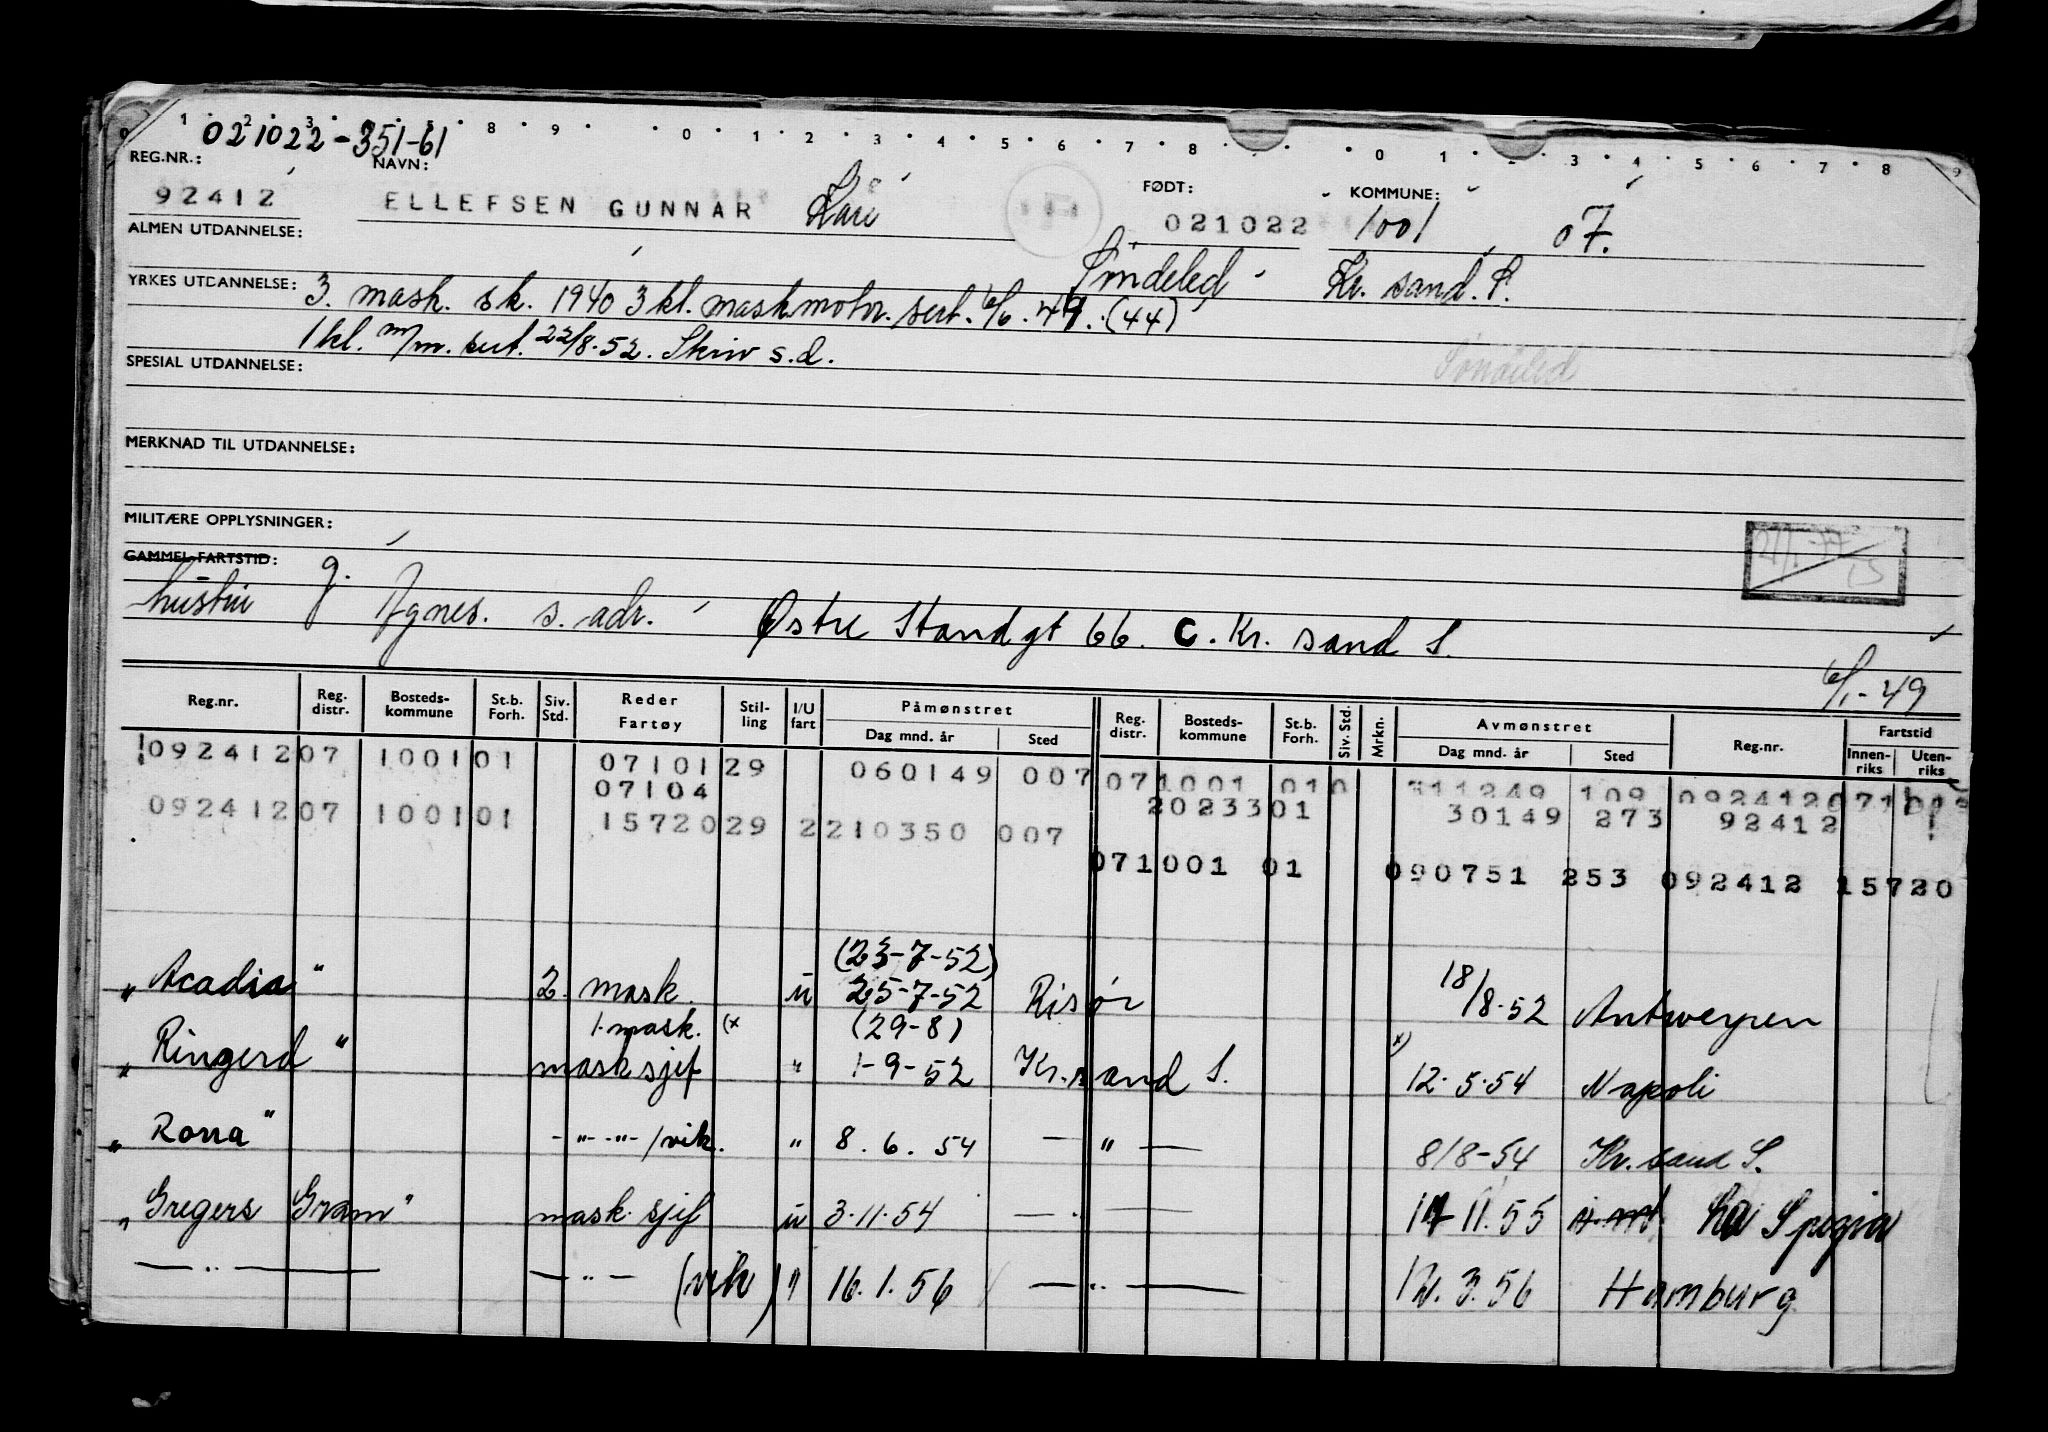 021022-351-61
REG.NR.: NAVN: FØDT: KOMMUNE:
92412 ELLEFSEN GUNNAR Kåre 021022 1001 07.
ALMEN UTDANNELSE: Søndeled Kr. sand. S.
YRKES UTDANNELSE: 3. mask. sk. 1940 3 kl. maskmotor. sert. 6/6. 49. (44)
1 kl. m/m. sert. 22/8.52. Skriv s.d.
SPESIAL UTDANNELSE: Søndeled
MERKNAD TIL UTDANNELSE:
MILITÆRE OPPLYSNINGER:
GAMMEL FARTSTID: g.
hustru Agnes. s. adr. Østre Strandgt 66. C. Kr. sand S.
6/1-49
Reg.nr. Reg. distr. Bosteds-kommune St.b. Forh. Siv. Std. Reder Fartøy Stil-ling I/U fart Påmønstret Dag mnd. år Sted Reg. distr. Bosteds-kommune St.b. Forh. Siv. Std. Mrkn. Avmønstret Dag mnd. år Sted Reg.nr. Fartstid Innen-riks Uten-riks
092412 07 1001 01 07101 29 060149 007 07 1001 010 311249 109 092412
07104 20233 01 30149 273 92412
092412 07 1001 01 15720 29 2 210350 007
07 1001 01 090751 253 092412 15720
(23-7-52)
"Acadia" 2. mask. u 25-7-52 Risør 18/8-52 Antwerpen
1. mask. (x (29-8)
"Ringerd" mask sjef " 1-9-52 Kr. sand S. x) 12.5.54 Napoli
"Rona" -"- -"- /vik. " 8.6.54 — " — 8/8-54 Kr. sand S.
"Gregers Gram" mask. sjef u 3.11.54 — " — 11.55 La Spezia
— " — — " — (vik) " 16.1.56 — " — 3.56 Hamburg